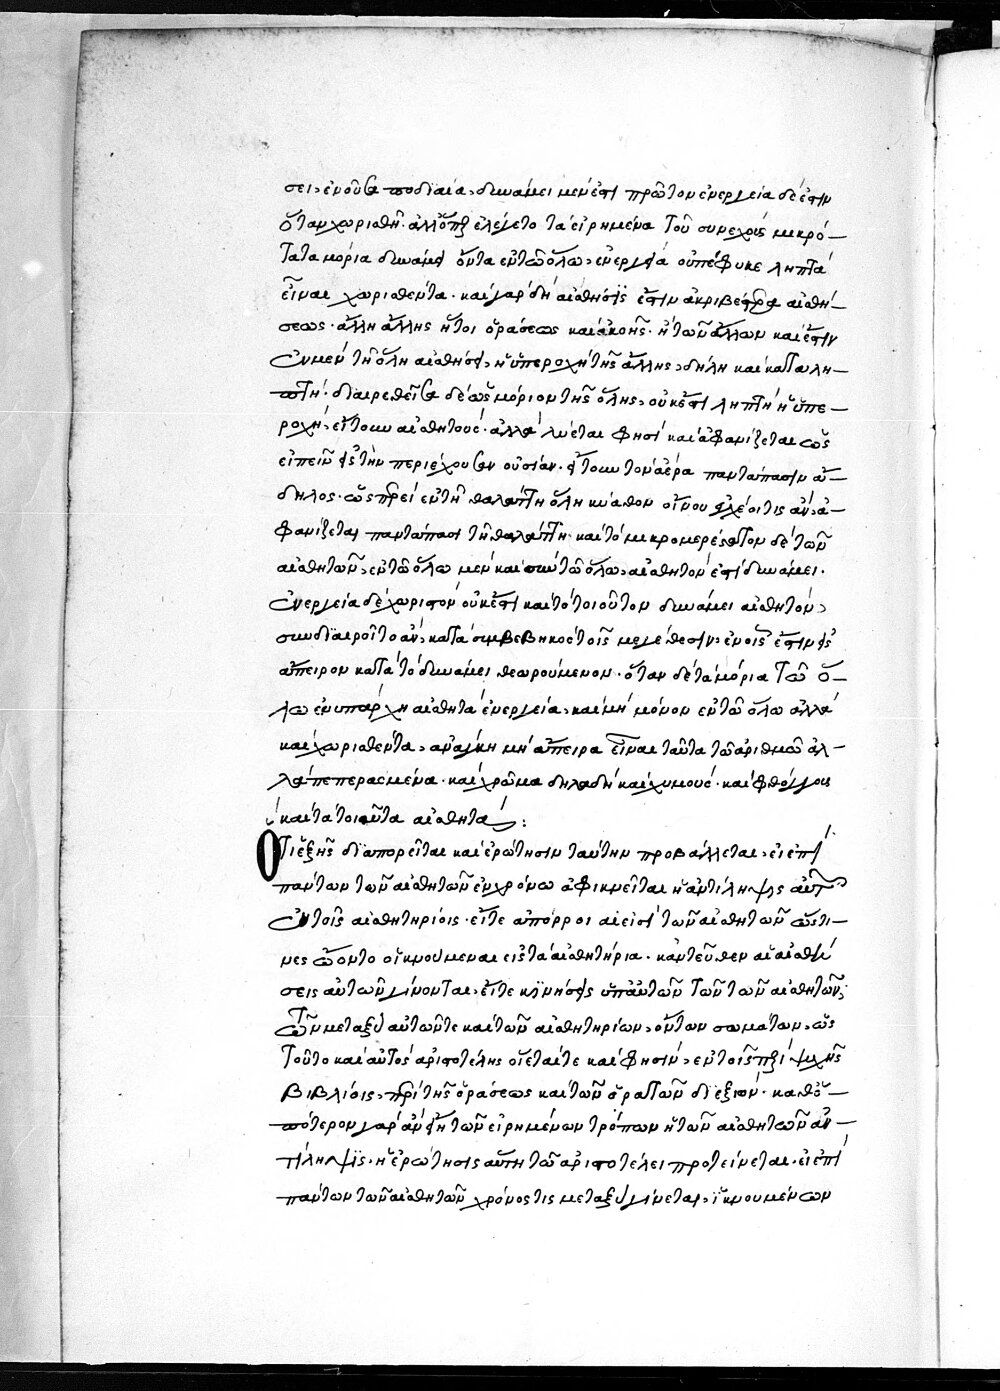 σει, ἐνοῦσα ποδιαία, δυνάμει μέν ἐστι πρῶτον ἐνεργεία δέ ἐστιν
ὅταν χωρισθῆ· ἀλλ' ὅπερ ἐλέγετο τὰ εἰρημένα τοῦ συνεχοῦς μικρό-
τατα μόρια δυνάμει ὄντα ἐν τῶ ὅλω, ἐνεργεία οὐ πέφυκε ληπτὰ
εἶναι χωρισθέντα· καὶ γὰρ δὴ αἴσθησίς ἐστιν ἀκριβεστέρα αἰσθή-
σεως· ἄλλη ἄλλης ἤτοι ὁράσεως καὶ ἀκοῆς· ἢ τῶν ἄλλων καὶ ἔστιν
ἐν μὲν τῆ ὅλη αἰσθήσει, ἡ ὑπεροχὴ τῆς ἄλλης, δήλη καὶ καταλη-
πτή· διαιρεθεῖσα δὲ ὡς μόριον τῆς ὅλης, οὐκ ἔστι ληπτὴ ἡ ὑπε-
ροχή, εἴτουν αἰσθητούς· ἀλλὰ λύεται φησὶ καὶ ἀφανίζεται ὡς
εἰπεῖν εἰς τὴν περιέχουσαν οὐσίαν· εἴτουν τὸν ἀέρα παντάπασιν ἄ-
δηλος· ὥσπερ εἰ ἐν τῆ θαλάττη ὅλη κύαθον οἴνου ἐγχέοι τις ἂν, ἀ-
φανίζεται παντάπασι τῆ θαλάττη· καὶ τὸ μικρομερέστατον δὲ τῶν
αἰσθητῶν, ἐν τῶ ὅλω μὲν καὶ σὺν τῶ ὅλω, αἰσθητόν ἐστι δυνάμει·
ἐνεργεία δὲ χωριστὸν οὐκ ἔστι καὶ τὸ τοιοῦτον δυνάμει αἰσθητόν,
συνδιαιροῖτο ἂν, κατὰ συμβεβηκὸς τοῖς μεγέθεσιν, ἐν οἷς ἐστιν εἰς
ἄπειρον κατὰ τὸ δυνάμει θεωρούμενον· ὅταν δὲ τὰ μόρια τῶ ὅ-
λω ἐνυπάρχη αἰσθητὰ ἐνεργεία, καὶ μὴ μόνον ἐν τῶ ὅλω ἀλλὰ
καὶ χωρισθέντα, ἀνάγκη μὴ ἄπειρα εἶναι ταῦτα τῶ ἀριθμῶ ἀλ-
λὰ πεπερασμένα· καὶ χρῶμα δηλαδὴ καὶ χυμούς· καὶ φθόγγους
καὶ τὰ τοιαῦτα αἰσθητά:
Ὅτι ἑξῆς διαπορεῖται καὶ ἐρώτησιν ταύτην προβάλλεται, εἰ ἐπὶ
πάντων τῶν αἰσθητῶν ἐν χρόνω ἀφικνεῖται ἡ ἀντίληψις αὐτῶν
ἐν τοῖς αἰσθητηρίοις· εἴτε ἀπόρροιαι εἰσὶ τῶν αἰσθητῶν ὥς τι-
νες ὤοντο οἱ κνούμεναι εἰς τὰ αἰσθητήρια· κἀντεῦθεν αἱ αἰσθή
σεις αὐτῶν γίνονται, εἴτε κινήσεις ὑπ' αὐτῶν τῶν τῶν αἰσθητῶν,
τῶν μεταξὺ αὐτῶν τε καὶ τῶν αἰσθητηρίων, ὄντων σωμάτων, ὡς
τοῦτο καὶ αὐτὸς ἀριστοτέλης οἴεταί τε καὶ φησὶν, ἐν τοῖς περὶ ψυχῆς
βιβλίοις, περὶ τῆς ὁράσεως καὶ τῶν ὁρατῶν διεξιών· καθ' ὁ-
πότερον γὰρ ἂν εἴη τῶν εἰρημένων τρόπων ἡ τῶν αἰσθητῶν ἀν-
τίληψις· ἡ ἐρώτησις αὕτη τῶ ἀριστοτέλει προτείνεται· εἰ ἐπὶ
πάντων τῶν αἰσθητῶν χρόνος τις μεταξὺ γίνεται, ἱκνουμένων